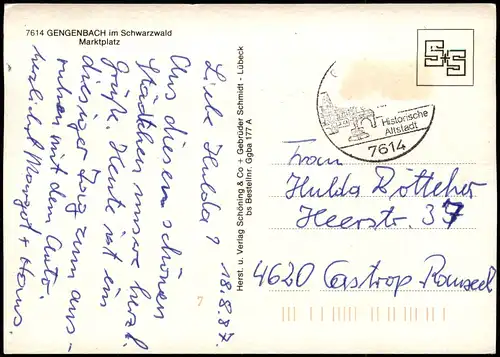 7614 GENGENBACH im Schwarzwald
Marktplatz
Liebe Hulda! 18.8.87.
Aus diesem schönen
Städtchen unsere herzl.
Grüße. Heute ist ein
diesiger Tag zum aus-
ruhen mit dem Auto.
herzlichst Margot + Hans.
Herst. u. Verlag Schöning & Co + Gebrüder Schmidt - Lübeck
bs Bestellnr. Ggba 177 A
S+S
Historische
Altstadt
7614
Frau
Hulda Bötticher
Heerstr. 37
4620 Castrop Rauxel
7